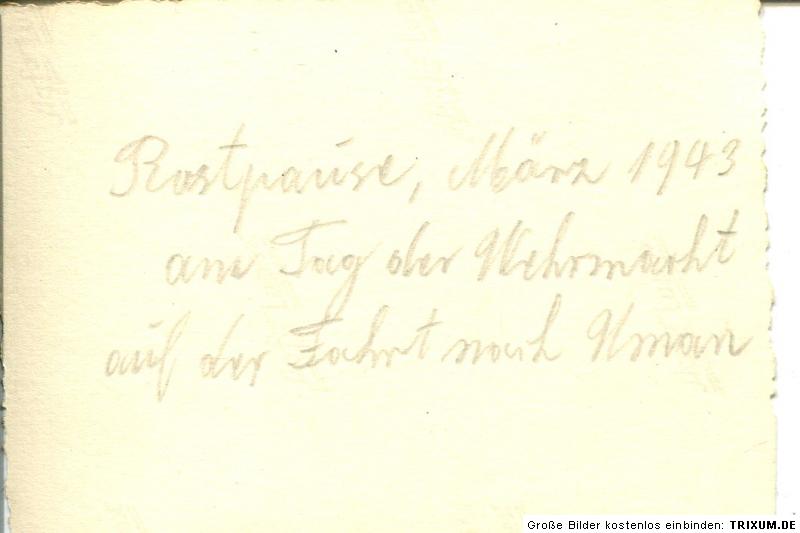 Rastpause, März 1943
am Tag der Wehrmacht
auf der Fahrt nach Uman
Große Bilder kostenlos einbinden: TRIXUM.DE